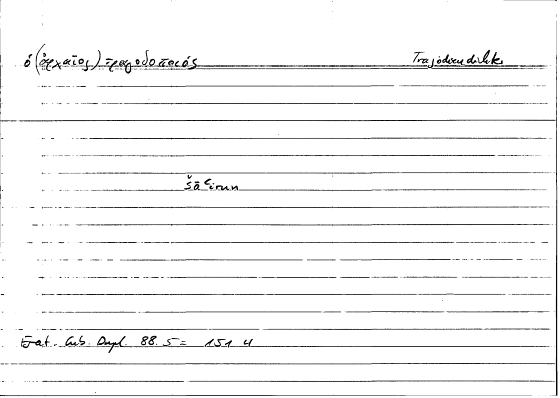 ὁ (ἀρχαῖος) τραγῳδοποιός Tragödiendichter
šāʿirun
Gal. An. Dupl. 88. 5 = 151 u